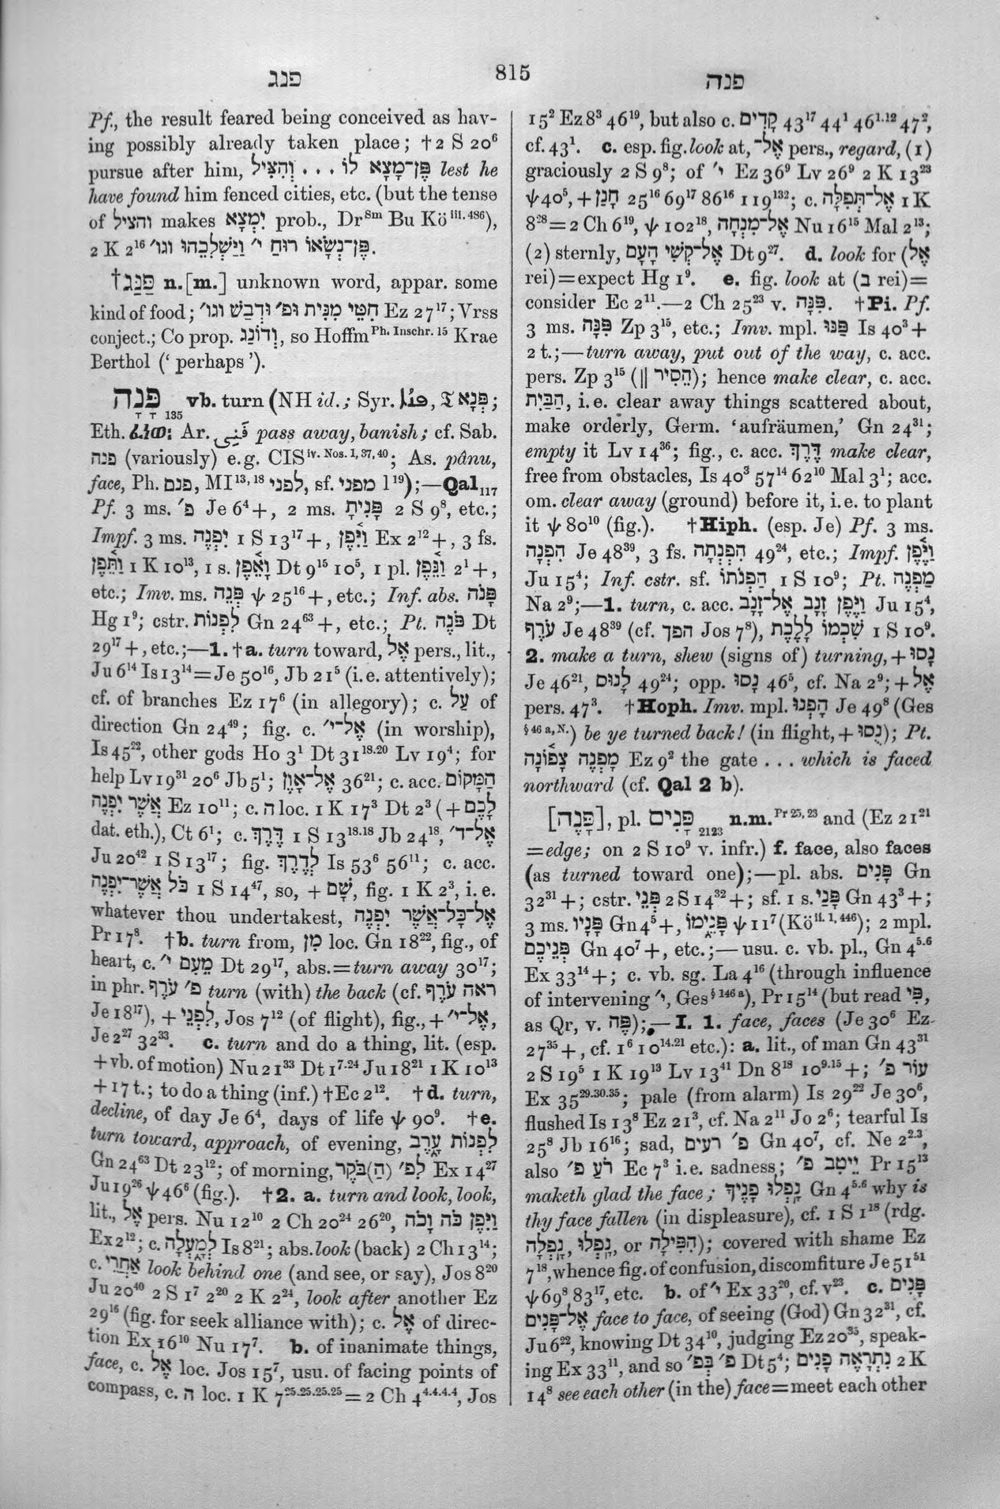 פנג
815
פנה
Pf., the result feared being conceived as hav-
ing possibly already taken place; †2 S 20⁶
pursue after him, פֶּן־מָצָא לוֹ . . . וְהִצִּיל lest he
have found him fenced cities, etc. (but the tense
of והציל makes יִמְצָא prob., Dr Sm Bu Kö iii. 486),
2 K 2¹⁶ פֶּן־נְשָׂאוֹ רוּחַ י׳ וַיַּשְׁלִכֵהוּ וגו׳.
†פַּנַּג n.[m.] unknown word, appar. some
kind of food; חִטֵּי מִנִּית וּפ׳ וּדְבַשׁ וגו׳ Ez 27¹⁷; Vrss
conject.; Co prop. וְדוֹנַג, so Hoffm Ph. Inschr. 15 Krae
Berthol (‘ perhaps ’).
פָּנָה 135 vb. turn (NH id.; Syr. ܦܢܳܐ, 𝔗 פְּנָא;
Eth. ፈነወ፡ Ar. فَنِىَ pass away, banish; cf. Sab.
פנה (variously) e.g. CIS iv. Nos. 1, 37, 40; As. pânu,
face, Ph. פנם, MI 13, 18 לפני, sf. מפני l 19);—Qal 117
Pf. 3 ms. פ׳ Je 6⁴+, 2 ms. פָּנִיתָ 2 S 9⁸, etc.;
Impf. 3 ms. יִפְנֶה 1 S 13¹⁷+, וַיִּפֶן Ex 2¹²+, 3 fs.
וַתֵּפֶן 1 K 10¹³, 1 s. וָאֵפֶן Dt 9¹⁵ 10⁵, 1 pl. וַנֵּפֶן 2¹+,
etc.; Imv. ms. פְּנֵה ψ 25¹⁶+, etc.; Inf. abs. פָּנֹה
Hg 1⁹; cstr. לִפְנוֹת Gn 24⁶³+, etc.; Pt. פֹּנֶה Dt
29¹⁷+, etc.;—1. †a. turn toward, אֶל pers., lit.,
Ju 6¹⁴ Is 13¹⁴=Je 50¹⁶, Jb 21⁵ (i.e. attentively);
cf. of branches Ez 17⁶ (in allegory); c. עַל of
direction Gn 24⁴⁹; fig. c. אֶל־י׳ (in worship),
Is 45²², other gods Ho 3¹ Dt 31¹⁸·²⁰ Lv 19⁴; for
help Lv 19³¹ 20⁶ Jb 5¹; אֶל־אָוֶן 36²¹; c. acc. הַמָּקוֹם
אֲשֶׁר יִפְנֶה Ez 10¹¹; c. ה loc. 1 K 17³ Dt 2³ (+לָכֶם
dat. eth.), Ct 6¹; c. דֶּרֶךְ 1 S 13¹⁸·¹⁸ Jb 24¹⁸, אֶל־ד׳
Ju 20⁴² 1 S 13¹⁷; fig. לְדֶרֶךְ Is 53⁶ 56¹¹; c. acc.
כֹּל אֲשֶׁר־יִפְנֶה 1 S 14⁴⁷, so, + שָׁם, fig. 1 K 2³, i.e.
whatever thou undertakest, אֶל־כָּל־אֲשֶׁר יִפְנֶה
Pr 17⁸. †b. turn from, מִן loc. Gn 18²², fig., of
heart, c. מֵעִם י׳ Dt 29¹⁷, abs.=turn away 30¹⁷;
in phr. פ׳ עֹרֶף turn (with) the back (cf. ראה עֹרֶף
Je 18¹⁷), + לִפְנֵי, Jos 7¹² (of flight), fig., + אֶל־י׳,
Je 2²⁷ 32³³. c. turn and do a thing, lit. (esp.
+vb. of motion) Nu 21³³ Dt 1⁷·²⁴ Ju 18²¹ 1 K 10¹³
+17 t.; to do a thing (inf.) †Ec 2¹². †d. turn,
decline, of day Je 6⁴, days of life ψ 90⁹. †e.
turn toward, approach, of evening, לִפְנוֹת עֶרֶב
Gn 24⁶³ Dt 23¹²; of morning, לִפ׳ (הַ)בֹּקֶר Ex 14²⁷
Ju 19²⁶ ψ 46⁶ (fig.). †2. a. turn and look, look,
lit., אֶל pers. Nu 12¹⁰ 2 Ch 20²⁴ 26²⁰, וַיִּפֶן כֹּה וָכֹה
Ex 2¹²; c. לְמָעְלָה Is 8²¹; abs. look (back) 2 Ch 13¹⁴;
c. אַחֲרֵי look behind one (and see, or say), Jos 8²⁰
Ju 20⁴⁰ 2 S 1⁷ 2²⁰ 2 K 2²⁴, look after another Ez
29¹⁶ (fig. for seek alliance with); c. אֶל of direc-
tion Ex 16¹⁰ Nu 17⁷. b. of inanimate things,
face, c. אֶל loc. Jos 15⁷, usu. of facing points of
compass, c. ה loc. 1 K 7²⁵·²⁵·²⁵·²⁵=2 Ch 4⁴·⁴·⁴·⁴, Jos
15² Ez 8³ 46¹⁹, but also c. קָדִים 43¹⁷ 44¹ 46¹·¹² 47²,
cf. 43¹. c. esp. fig. look at, אֶל־ pers., regard, (1)
graciously 2 S 9⁸; of י׳ Ez 36⁹ Lv 26⁹ 2 K 13²³
ψ 40⁵, + חָנַן 25¹⁶ 69¹⁷ 86¹⁶ 119¹³²; c. אֶל־תְּפִלָּה 1 K
8²⁸=2 Ch 6¹⁹, ψ 102¹⁸, אֶל־מִנְחָה Nu 16¹⁵ Mal 2¹³;
(2) sternly, אֶל־קְשִׁי הָעָם Dt 9²⁷. d. look for (אֶל
rei)=expect Hg 1⁹. e. fig. look at (בְּ rei)=
consider Ec 2¹¹.—2 Ch 25²³ v. פִּנָּה. †Pi. Pf.
3 ms. פִּנָּה Zp 3¹⁵, etc.; Imv. mpl. פַּנּוּ Is 40³+
2 t.;—turn away, put out of the way, c. acc.
pers. Zp 3¹⁵ (|| הֵסִיר); hence make clear, c. acc.
הַבַּיִת, i.e. clear away things scattered about,
make orderly, Germ. ‘aufräumen,’ Gn 24³¹;
empty it Lv 14³⁶; fig., c. acc. דֶּרֶךְ make clear,
free from obstacles, Is 40³ 57¹⁴ 62¹⁰ Mal 3¹; acc.
om. clear away (ground) before it, i.e. to plant
it ψ 80¹⁰ (fig.). †Hiph. (esp. Je) Pf. 3 ms.
הִפְנָה Je 48³⁹, 3 fs. הִפְנְתָה 49²⁴, etc.; Impf. וַיֶּפֶן
Ju 15⁴; Inf. cstr. sf. הַפְנֹתוֹ 1 S 10⁹; Pt. מַפְנֶה
Na 2⁹;—1. turn, c. acc. וַיֶּפֶן זָנָב אֶל־זָנָב Ju 15⁴,
עֹרֶף Je 48³⁹ (cf. הפך Jos 7⁸), שִׁכְמוֹ לָלֶכֶת 1 S 10⁹.
2. make a turn, shew (signs of) turning, + נָסוּ
Je 46²¹, לָנוּס 49²⁴; opp. נָסוּ 46⁵, cf. Na 2⁹; + אֶל
pers. 47³. †Hoph. Imv. mpl. הָפְנוּ Je 49⁸ (Ges
§ 46 a, N.) be ye turned back! (in flight, + נֻסוּ); Pt.
מָפְנֶה צָפוֹנָה Ez 9² the gate . . . which is faced
northward (cf. Qal 2 b).
[פָּנֶה], pl. פָּנִים 2123 n.m. Pr 25, 23 and (Ez 21²¹
=edge; on 2 S 10⁹ v. infr.) f. face, also faces
(as turned toward one);—pl. abs. פָּנִים Gn
32³¹+; cstr. פְּנֵי 2 S 14³²+; sf. 1 s. פָּנַי Gn 43³+;
3 ms. פָּנָיו Gn 4⁵+, פָּנֵימוֹ ψ 11⁷ (Kö ii. 1, 446); 2 mpl.
פְּנֵיכֶם Gn 40⁷+, etc.;—usu. c. vb. pl., Gn 4⁵·⁶
Ex 33¹⁴+; c. vb. sg. La 4¹⁶ (through influence
of intervening י׳, Ges § 146 a), Pr 15¹⁴ (but read פִּי,
as Qr, v. פֶּה);—I. 1. face, faces (Je 30⁶ Ez
27³⁵+, cf. 1⁶ 10¹⁴·²¹ etc.): a. lit., of man Gn 43³¹
2 S 19⁵ 1 K 19¹³ Lv 13⁴¹ Dn 8¹⁸ 10⁹·¹⁵+; עוֹר פ׳
Ex 35²⁹·³⁰·³⁵; pale (from alarm) Is 29²² Je 30⁶,
flushed Is 13⁸ Ez 21³, cf. Na 2¹¹ Jo 2⁶; tearful Is
25⁸ Jb 16¹⁶; sad, פ׳ רעים Gn 40⁷, cf. Ne 2²·³,
also רֹעַ פ׳ Ec 7³ i.e. sadness; יֵיטִב פ׳ Pr 15¹³
maketh glad the face; נָפְלוּ פָנֶיךָ Gn 4⁵·⁶ why is
thy face fallen (in displeasure), cf. 1 S 1¹⁸ (rdg.
נָפְלָה, נָפְלוּ, or הִפִּילָה); covered with shame Ez
7¹⁸, whence fig. of confusion, discomfiture Je 51⁵¹
ψ 69⁸ 83¹⁷, etc. b. of י׳ Ex 33²⁰, cf. v²³. c. פָּנִים
אֶל־פָּנִים face to face, of seeing (God) Gn 32³¹, cf.
Ju 6²², knowing Dt 34¹⁰, judging Ez 20³⁵, speak-
ing Ex 33¹¹, and so פ׳ בְּפ׳ Dt 5⁴; נִתְרָאֶה פָנִים 2 K
14⁸ see each other (in the) face=meet each other